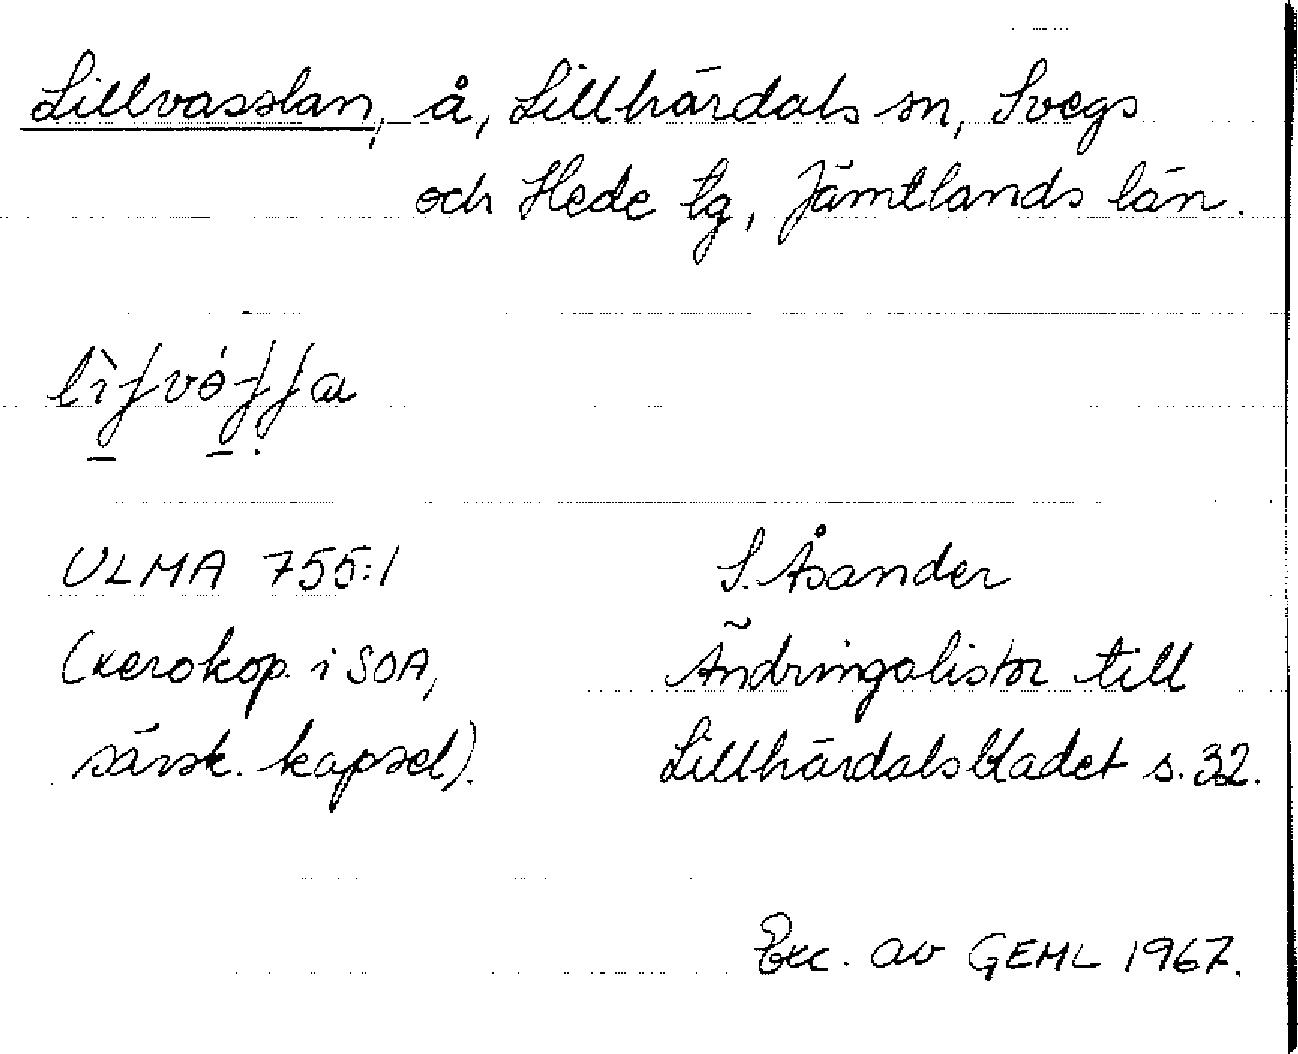 Lillvasslan, å, Lillhärdals sn, Svegs
och Hede tg, Jämtlands län.
ULMA 755:1
S. Åsander
(xerokop. i SOA,
Ändringslistor till
särsk. kapsel).
Lillhärdalsbladet s. 32.
Exc. av GEML 1967.